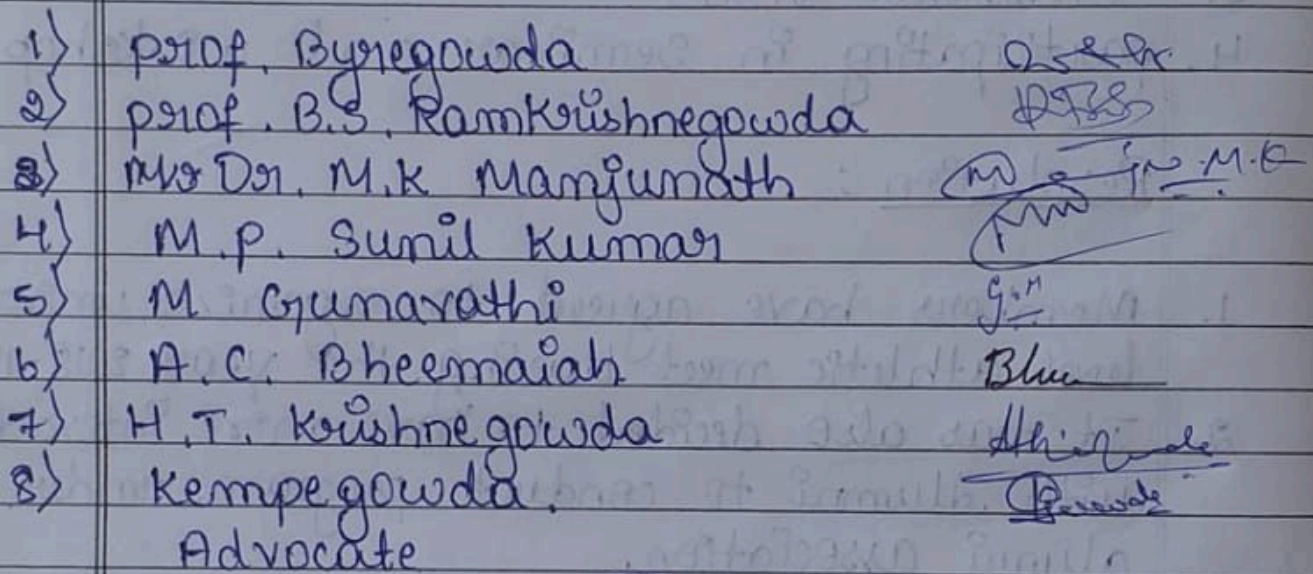 1) Prof. Byregowda
2) Prof. B.S. Ramkrishnegowda
3) Dr. M.K Manjunath M.K
4) M.P. Sunil Kumar
5) M Gunavathi G.M
6) A.C. Bheemaiah
7) H.T. Krishnegowda
8) Kempegowda.
Advocate